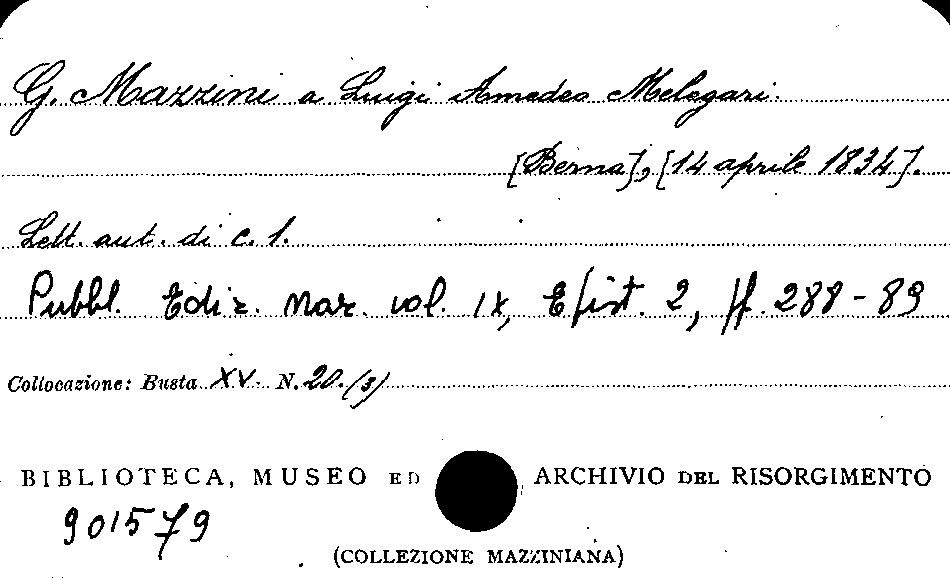 G. Mazzini a Luigi Amedeo Melegari.
[Berna], [14 aprile 1834].
Lett. aut. di c. 1.
Pubbl. Ediz. Naz. vol. IX, Epist. 2, pp. 288-89
Collocazione: Busta XV. N. 20.(3)
BIBLIOTECA, MUSEO ED ARCHIVIO DEL RISORGIMENTO
901579
(COLLEZIONE MAZZINIANA)